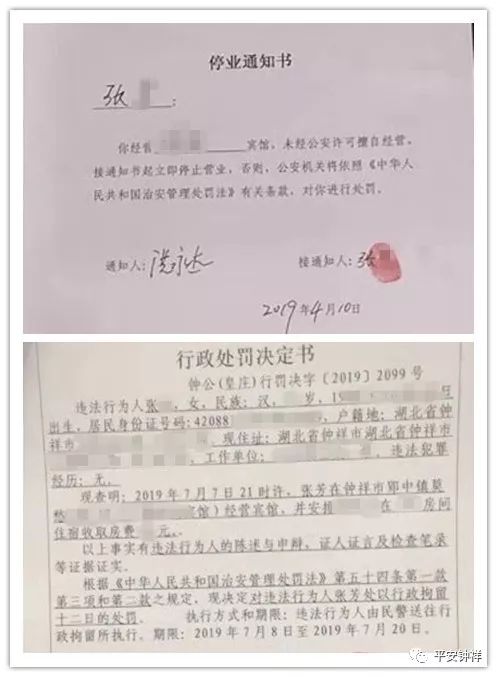 停业通知书
张 :
你经营 宾馆,未经公安许可擅自经营,
接通知书起立即停止营业,否则,公安机关将依照《中华人
民共和国治安管理处罚法》有关条款,对你进行处罚。
通知人: 接通知人:张
2019年4月10日
行政处罚决定书
钟公(皇庄)行罚决字〔2019〕2099号
违法行为人张 ,女,民族:汉, 岁,19
出生,居民身份证号码:42088 ,户籍地:湖北省钟
祥市 ,现住址:湖北省钟祥市湖北省钟祥市
,工作单位: ,违法犯罪
经历:无。
现查明:2019年7月7日21时许,张芳在钟祥市郢中镇莫
愁 宾馆)经营宾馆,并安排 在 房间
住宿收取房费 元。
以上事实有违法行为人的陈述与申辩、证人证言及检查笔录
等证据证实。
根据《中华人民共和国治安管理处罚法》第五十四条第一款
第三项和第二款之规定,现决定对违法行为人张芳处以行政拘留
十二日的处罚。 执行方式和期限:违法行为人由民警送往行
政拘留所执行。期限:2019年7月8日至2019年7月20日。
平安钟祥